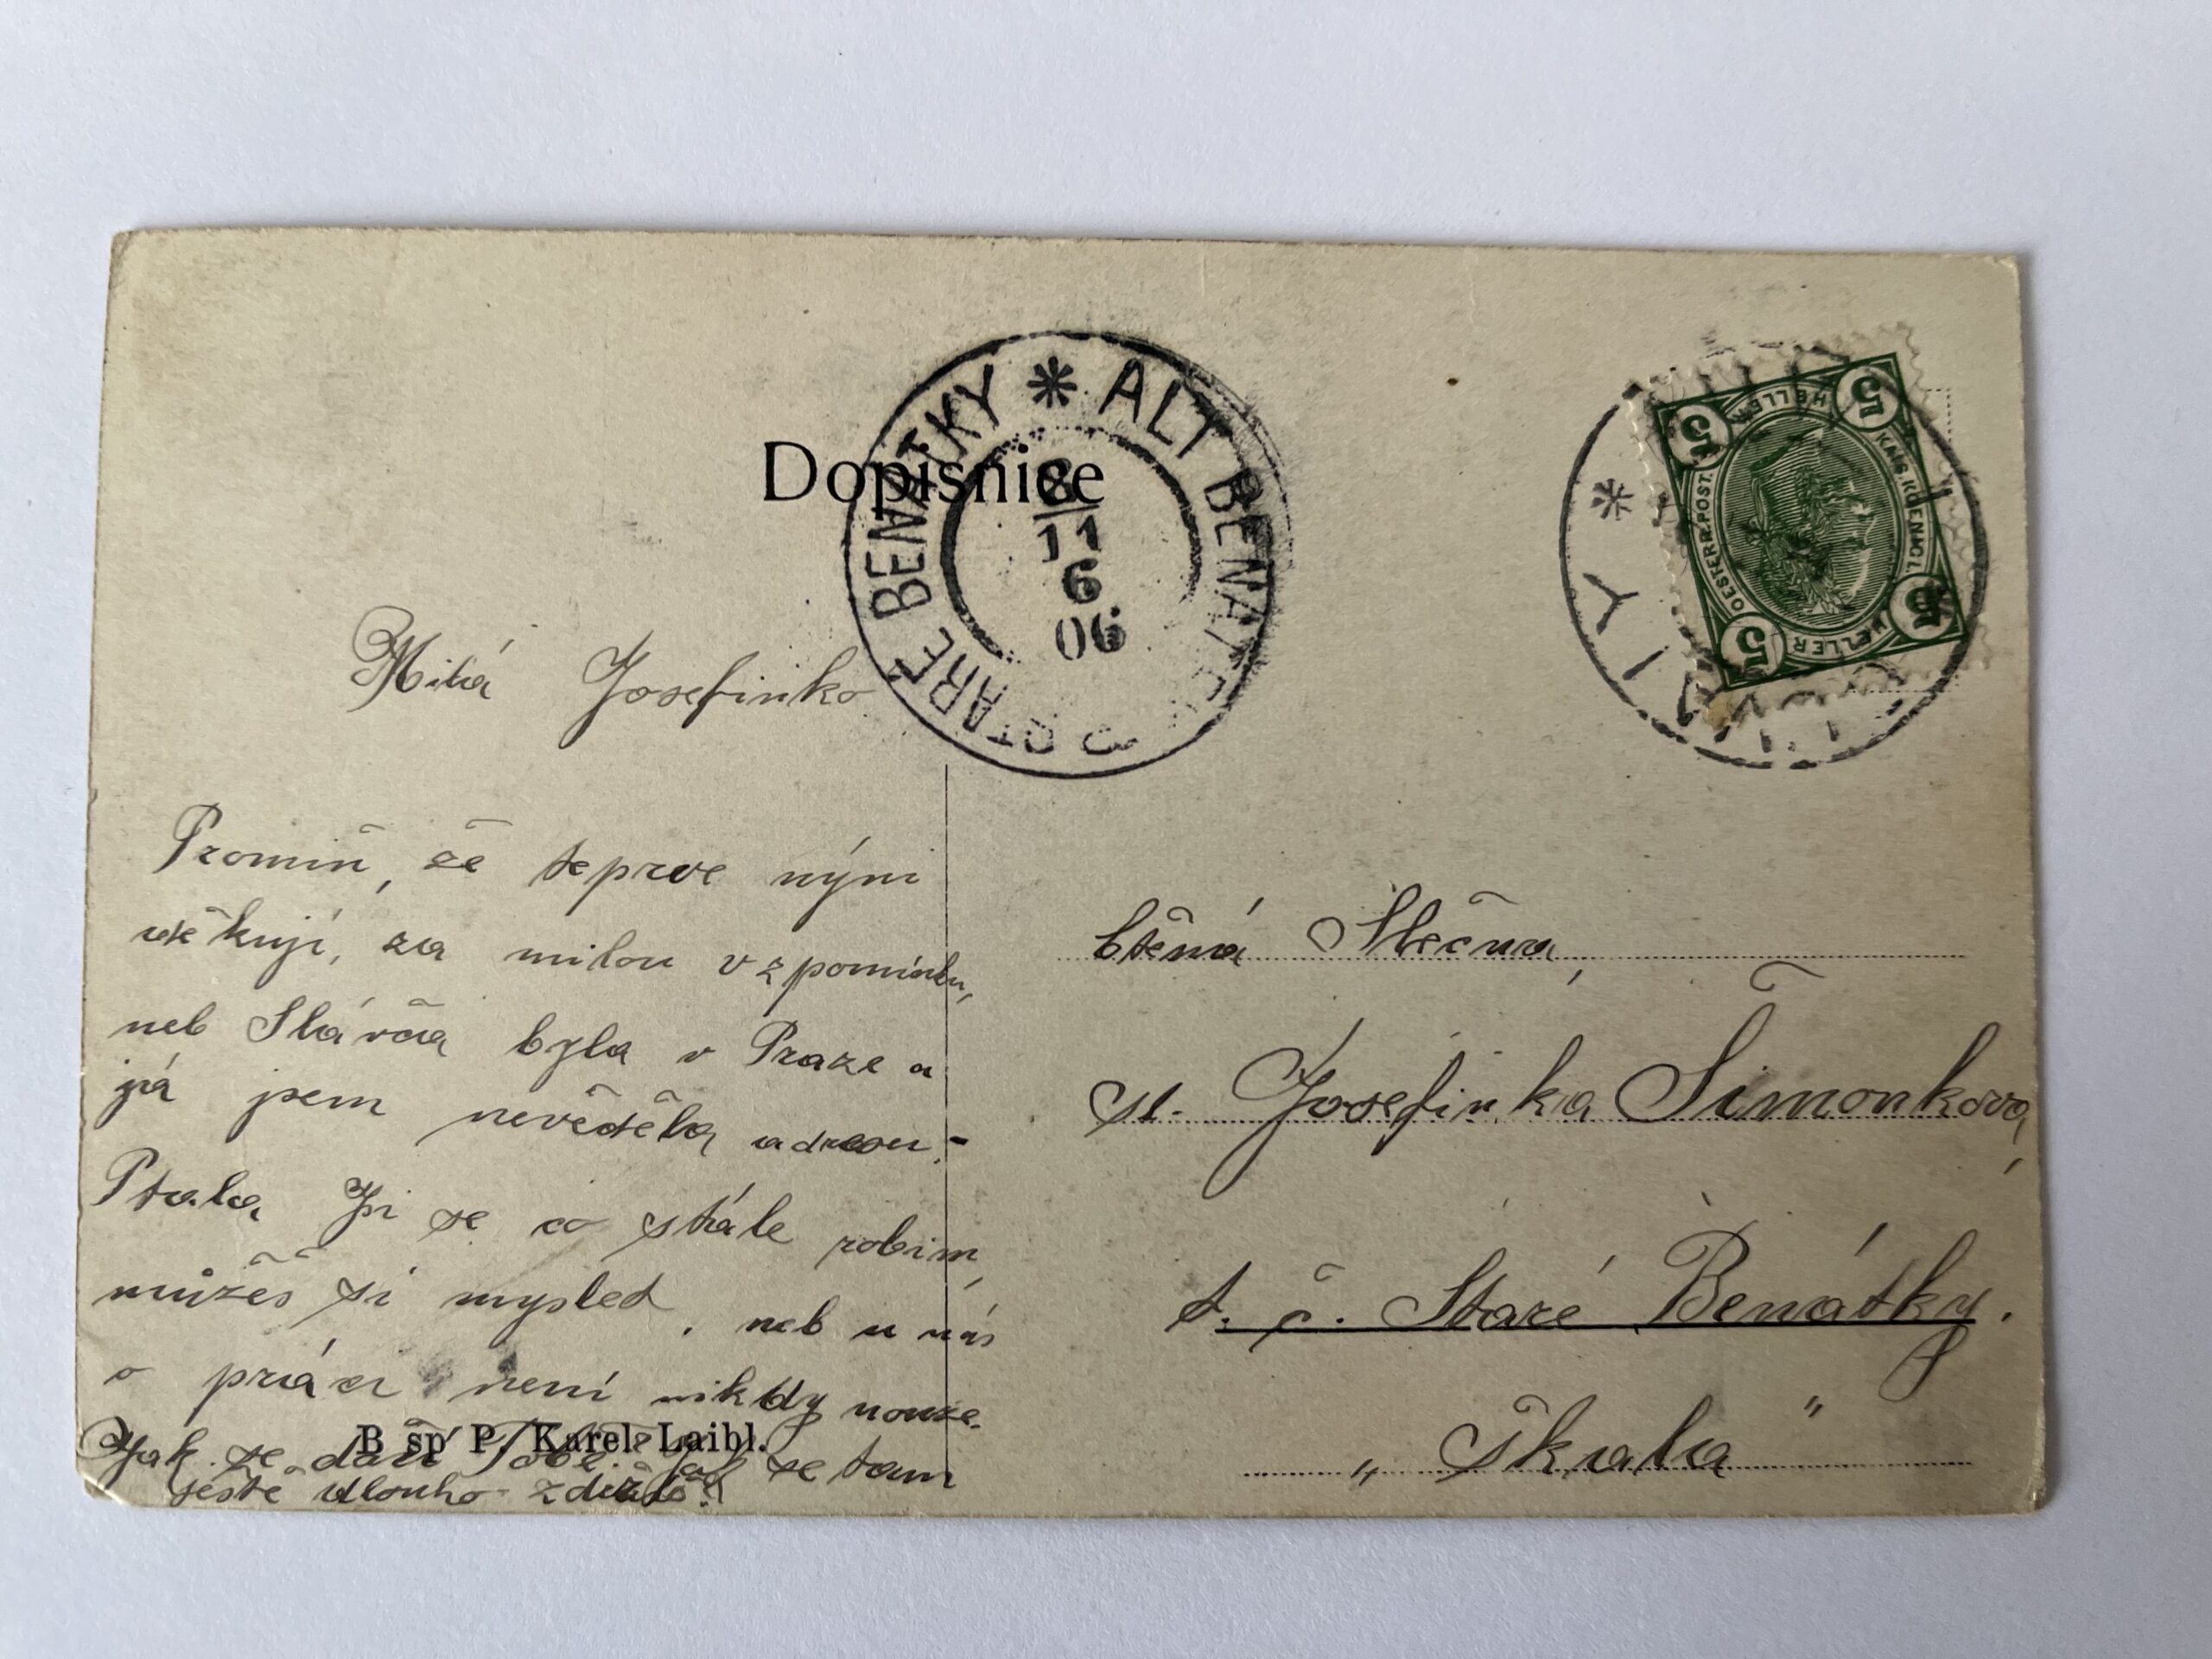 Dopisnice
STARÉ BENÁTKY * ALT BENATEK
8
11
6
06
5 HELLER 5
KAIS. KOENIGL.
OESTERR. POST.
5 HELLER 5
Milá Josefinko
Promiň, že teprve nýni
děkuji, za milou vzpomínku,
neb Slávča byla v Praze a
já jsem nevěděla adresu.-
Ptala Ji se co stále robím,
můžeš si mysled, neb u nás
o práci není nikdy nouze.
Jak se daří Tobě? Jak se tam
ještě dlouho zdržíš?
B sp P. Karel Laibl.
Ctěná Slečna,
sl. Josefinka Šimonkova,
t. č. Staré Benátky.
„Škala"